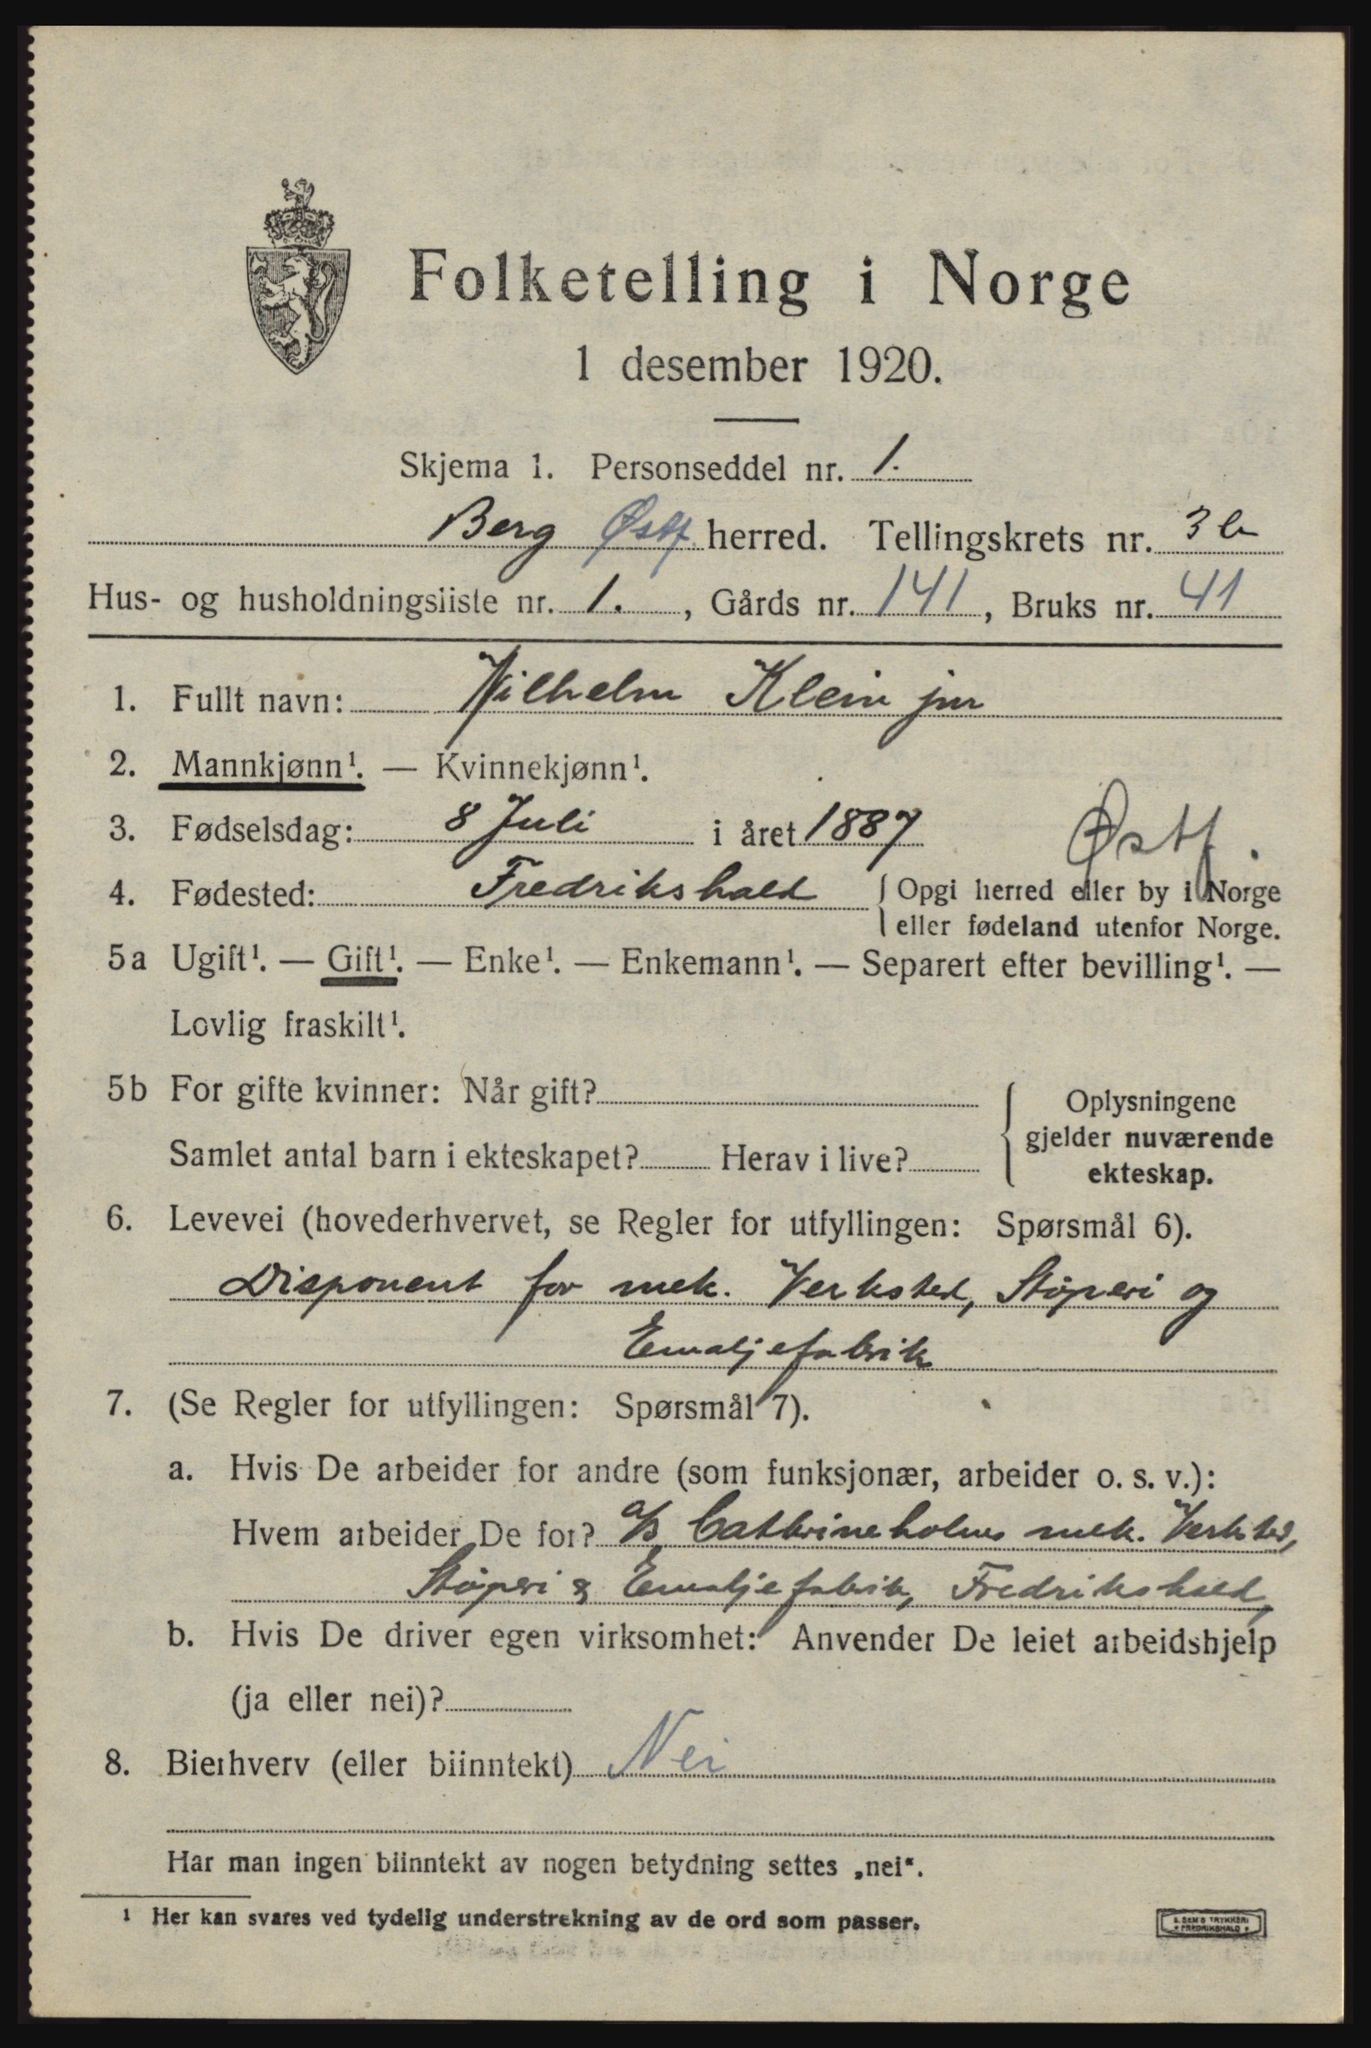 Folketelling i Norge
1 desember 1920.
Skjema 1. Personseddel nr. 1.
Berg Østf herred. Tellingskrets nr. 3 b
Hus- og husholdningsliste nr. 1. , Gårds nr. 141, Bruks nr. 41
1. Fullt navn: Wilhelm Klein jnr
2. Mannkjønn¹. — Kvinnekjønn¹.
3. Fødselsdag: 8 Juli i året 1887
Østf.
4. Fødested: Fredrikshald { Opgi herred eller by i Norge
eller fødeland utenfor Norge.
5a Ugift¹. — Gift¹. — Enke¹. — Enkemann¹. — Separert efter bevilling¹. —
Lovlig fraskilt¹.
5b For gifte kvinner: Når gift?
Samlet antal barn i ekteskapet? Herav i live?
{ Oplysningene
gjelder nuværende
ekteskap.
6. Levevei (hovederhvervet, se Regler for utfyllingen: Spørsmål 6).
Disponent for mek. Verksted, Støperi og
Emaljefabrik
7. (Se Regler for utfyllingen: Spørsmål 7).
a. Hvis De arbeider for andre (som funksjonær, arbeider o. s. v.):
Hvem arbeider De for? a/s Cathrineholms mek. Verksted,
Støperi & Emaljefabrik, Fredrikshald,
b. Hvis De driver egen virksomhet: Anvender De leiet arbeidshjelp
(ja eller nei)?
8. Bierhverv (eller biinntekt) Nei
Har man ingen biinntekt av nogen betydning settes „nei“.
¹ Her kan svares ved tydelig understrekning av de ord som passer.
E. SEM'S TRYKKERI
FREDRIKSHALD